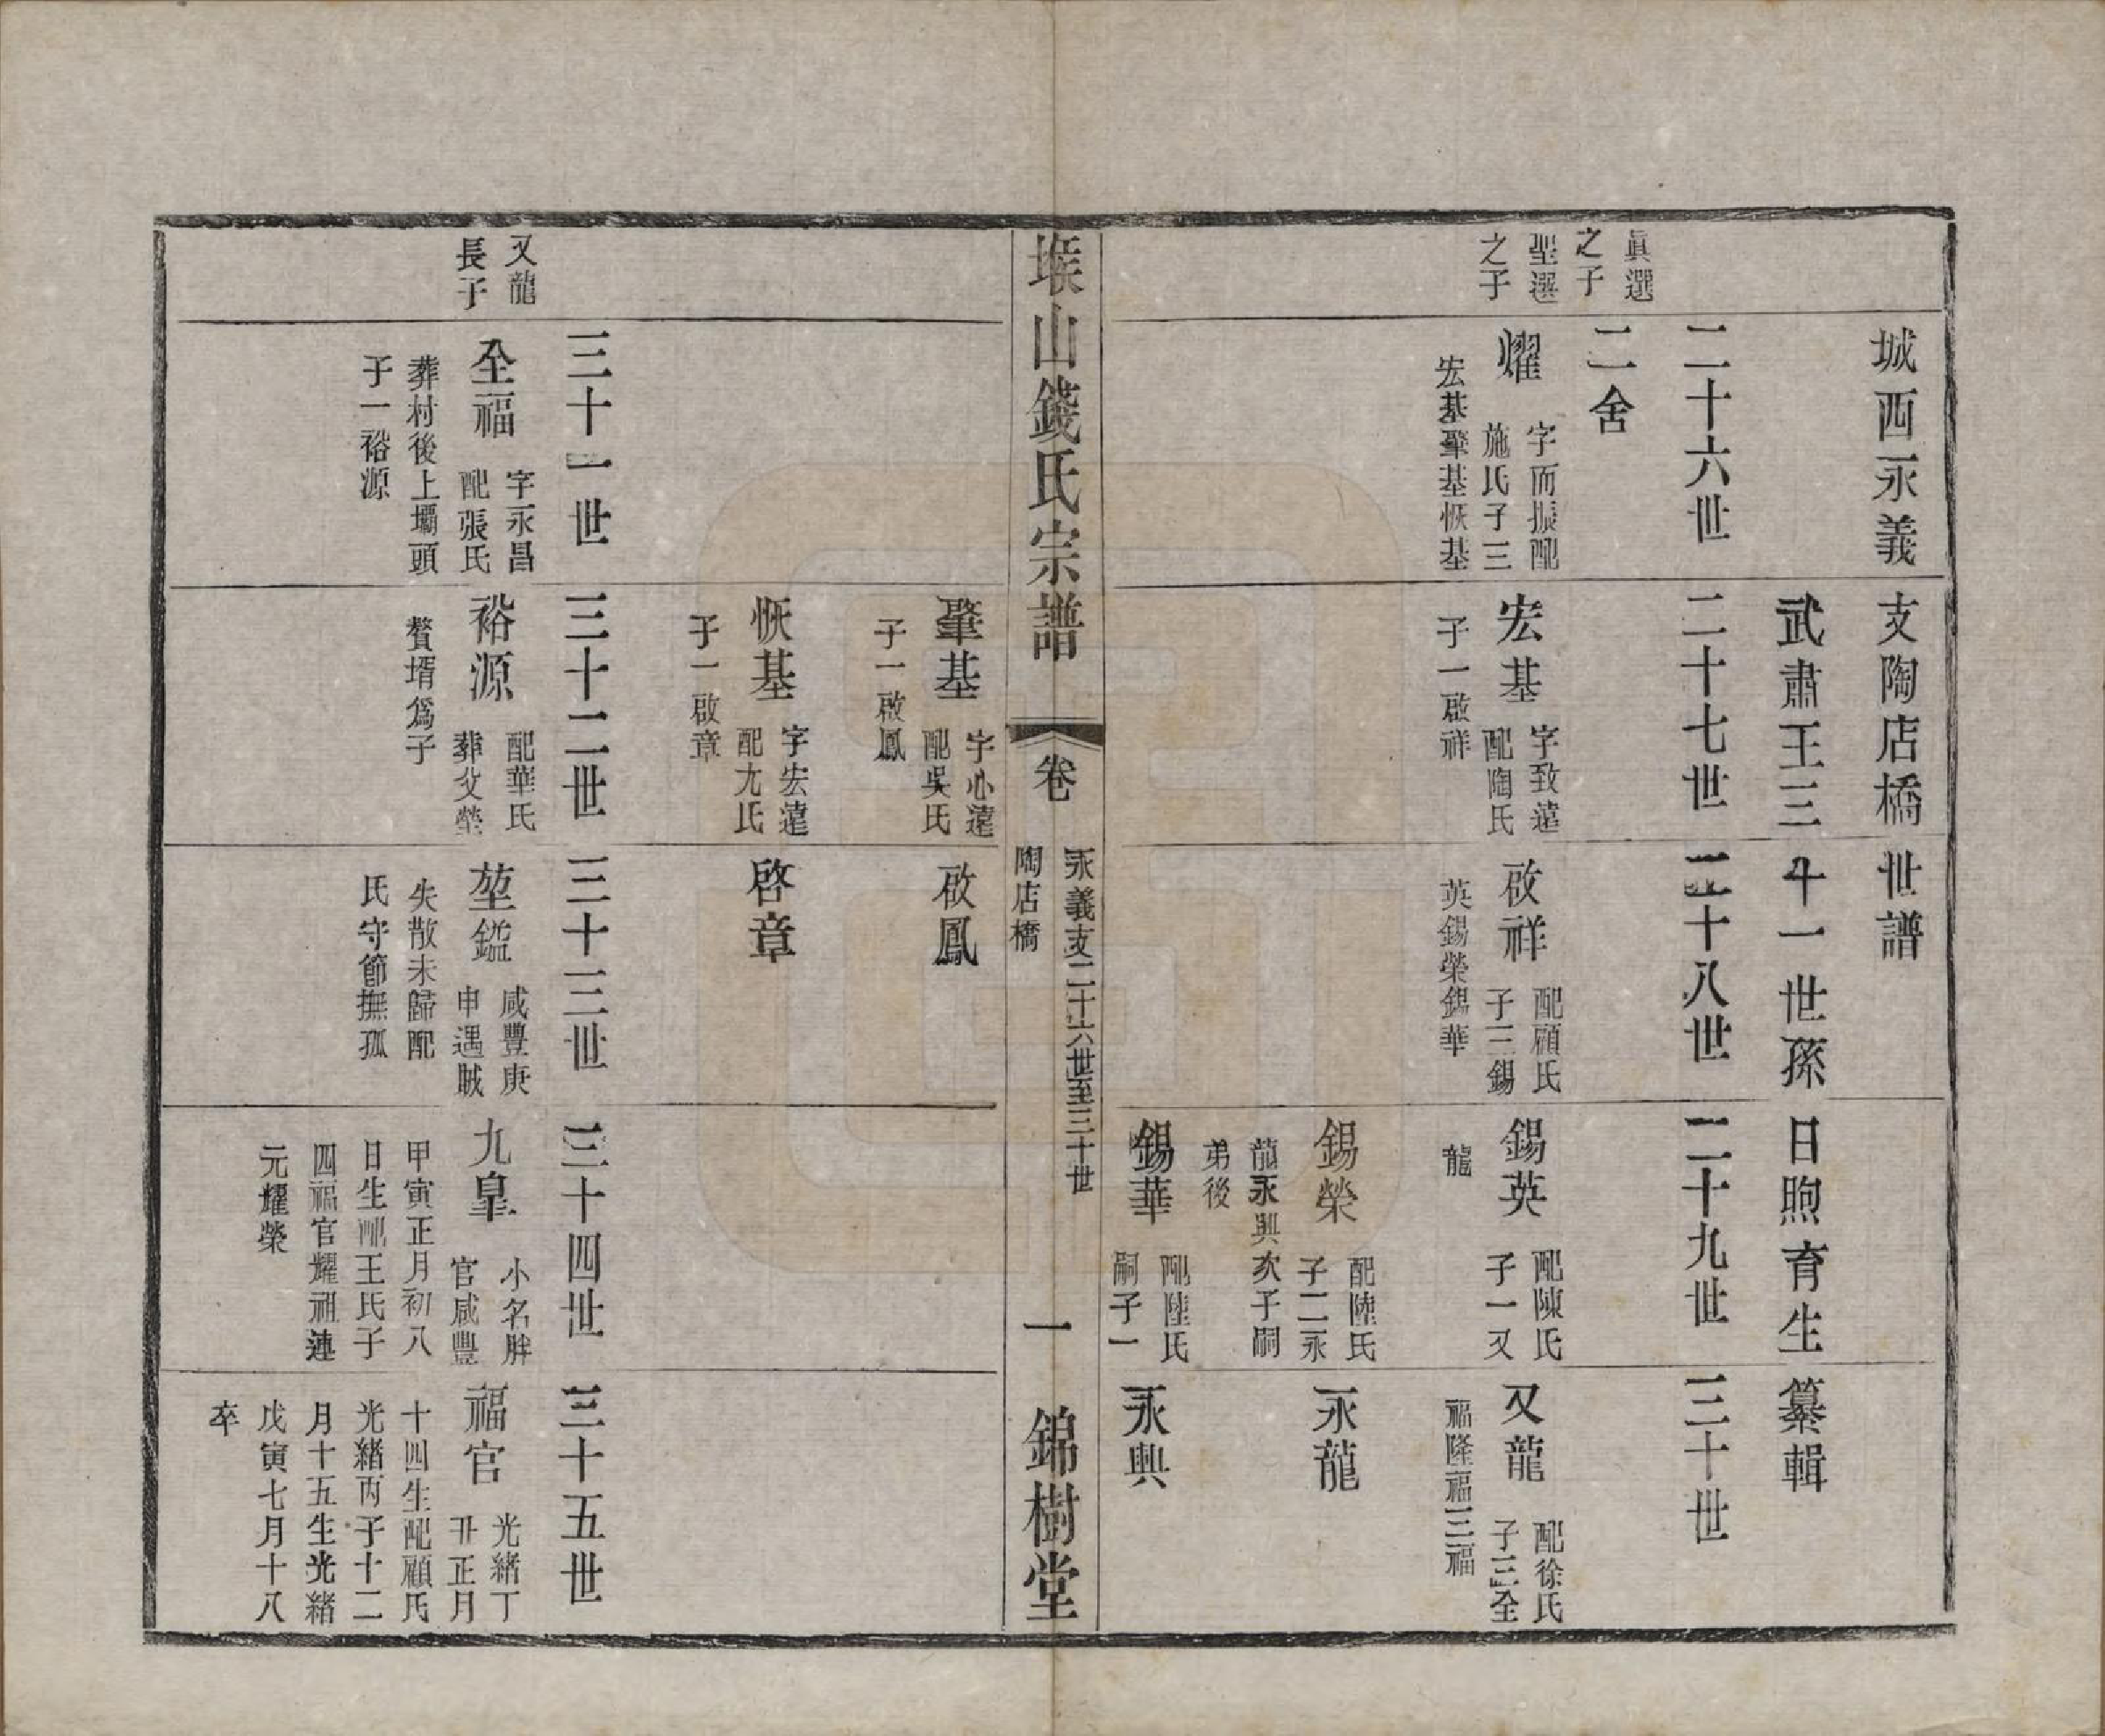 城西永義支陶店橋世譜
武肅王三十一世孫日煦育生纂輯
二十六世
二十七世
二十八世
二十九世
三十世
眞選之子
二舍
聖選之子
燿
字而振配施氏子三宏基肇基恢基
宏基
字致遠配陶氏子一啟祥
啟祥
配顧氏子三錫英錫榮錫華
錫英
配陳氏子一又龍
又龍
配徐氏子三全福隆福三福
錫榮
配陸氏子二永龍永興次子嗣弟後
永龍
錫華
配陸氏嗣子一
永興
堠山錢氏宗譜
卷
永義支二十六世至三十世
陶店橋
一
錦樹堂
肇基
字心遠配吳氏子一啟鳳
啟鳳
恢基
字宏遠配尤氏子一啟章
啓章
三十一世
三十二世
三十三世
三十四世
三十五世
又龍長子
全福
字永昌配張氏葬村後上壩頭子一裕源
裕源
配華氏葬父塋贅壻爲子
堃鑑
咸豐庚申遇賊失散未歸配氏守節撫孤
九皐
小名胖官咸豐甲寅正月初八日生配王氏子四福官耀祖連元耀榮
福官
光緒丁丑正月十四生配顧氏光緒丙子十二月十五生光緒戊寅七月十八卒